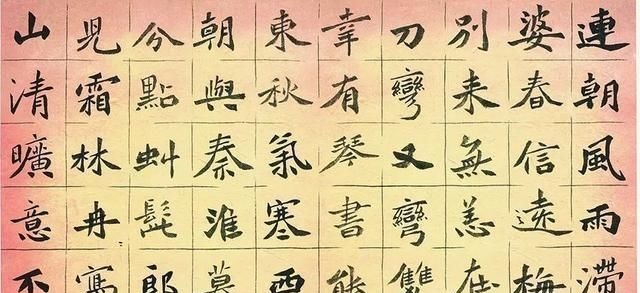 連朝風雨滯
婆春信遠梅
别来無恙在
刀彎又彎雙
幸有琴書能
東秋氣寒西
朝與秦淮莫
分點虯髭郎
児霜林冉寫
山清曠意不